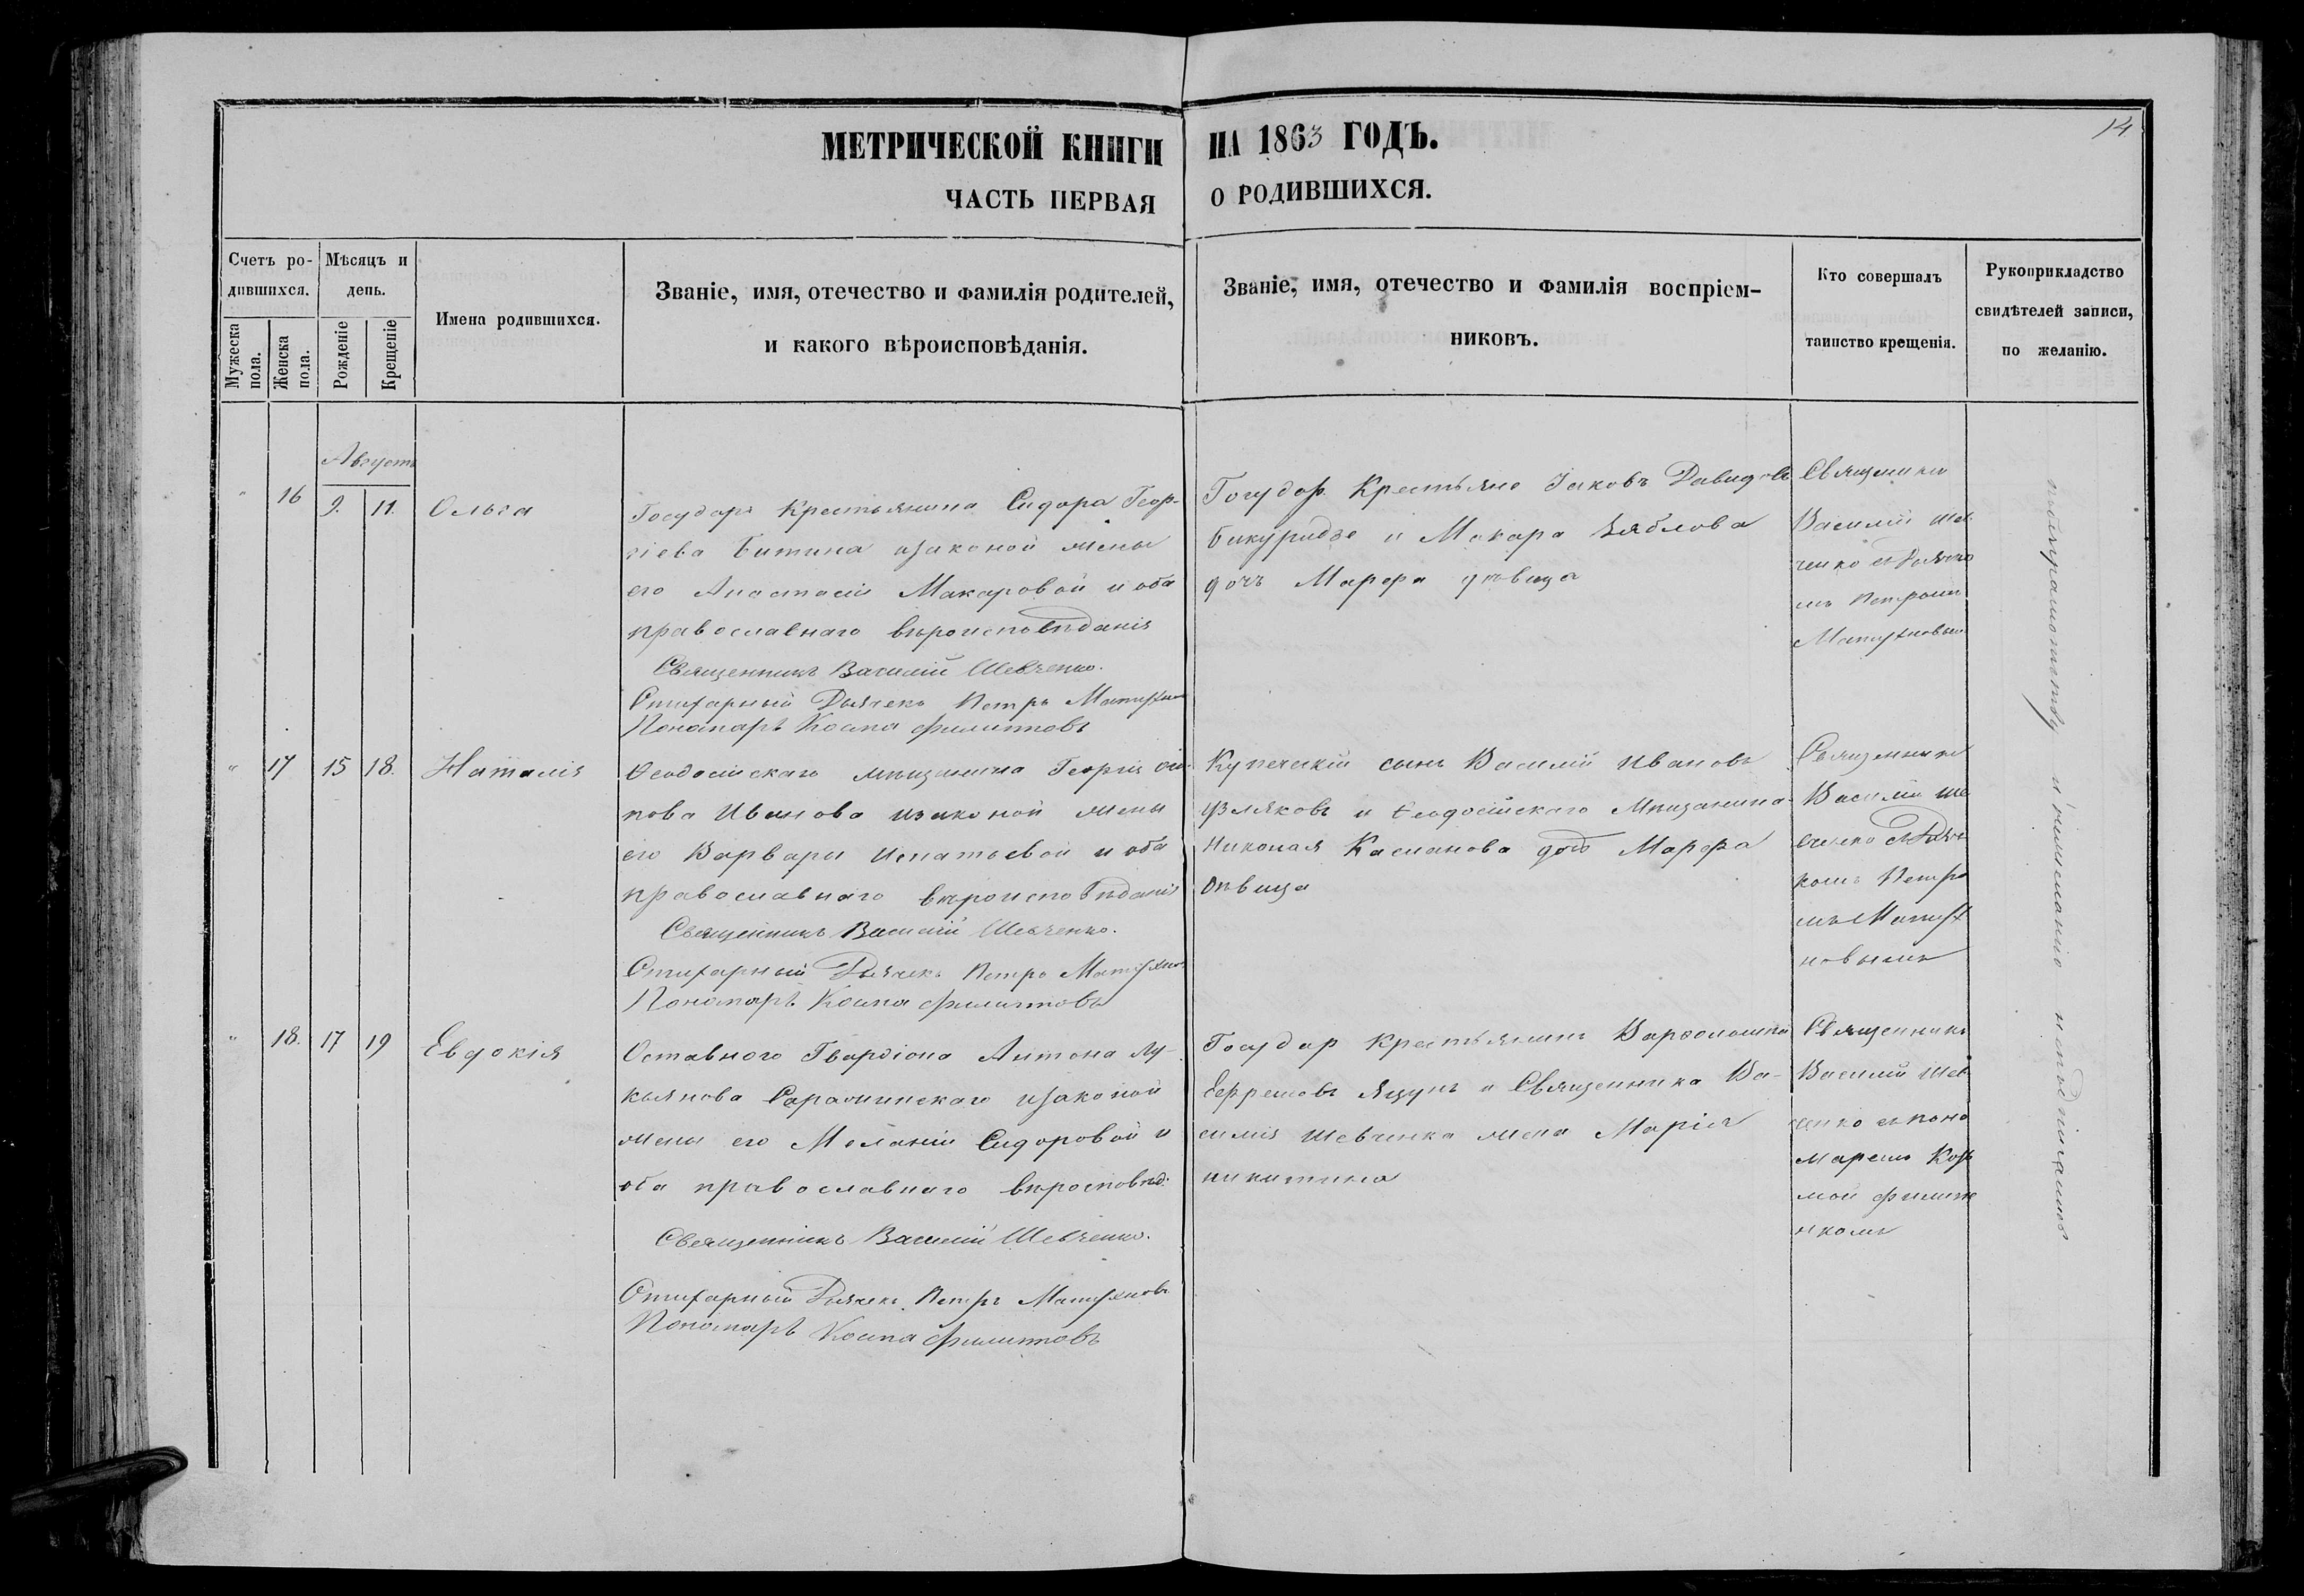 МЕТРИЧЕСКОЙ КНИГИ НА 1863 ГОДЪ.
14
ЧАСТЬ ПЕРВАЯ О РОДИВШИХСЯ.
Счетъ ро-
дившихся.
Мужеска пола.
Женска пола.
Мѣсяцъ и
день.
Рожденіе
Крещеніе
Имена родившихся.
Званіе, имя, отечество и фамилія родителей,
и какого вѣроисповѣданія.
Званіе, имя, отечество и фамилія воспріем-
никовъ.
Кто совершалъ
таинство крещенія.
Рукоприкладство
свидѣтелей записи,
по желанію.
Августъ
" 16 9. 11. Ольга
Государ: Крестьянина Сидора Геор-
гіева изаконой жены
его Анастасіи Макаровой и оба
православнаго вѣроисповѣданія
Священникъ Василій Шевченко.
Стихарный Дьячекъ Петръ
Пономарь Косма Филипповъ
Государ. Крестьяне Іаковъ Давидовъ
и Макара Зяблова
дочъ Марфа дѣвица
Священникъ
Василій Шев
ченко съ Дьячко
мъ Петромъ
" 17 15 18. Наталія
Ѳеодосійскаго мѣщанина Георгія
Иванова изаконой жены
его Варвары Игнатьевой и оба
православнаго вѣроисповѣданія
Священникъ Василій Шевченко.
Стихарный Дьячекъ Петръ
Пономарь Косма Филипповъ
Купеческій сынъ Василій Ивановъ
и Ѳеодосійскаго Мѣщанина
Николая Касланова доч Марфа
дѣвица
Священникъ
Василій Ше
вченко съ Дьяч
комъ Петро
мъ
новымъ
" 18. 17 19 Евдокія
Оставного Антона Лу-
кьянова изаконой
жены его Меланіи Сидоровой и
оба православнаго вѣроисповѣд:
Священникъ Василій Шевченко.
Стихарный Дьячекъ Петръ
Пономарь Косма Филипповъ
Государ Крестьянинъ Варфоломей
Ефремовъ Яцунъ и Священника Ва-
силія Шевченка жена Марія
никитина
Священникъ
Василій Шев
ченко съ поно
маремъ Коз
мой Филип